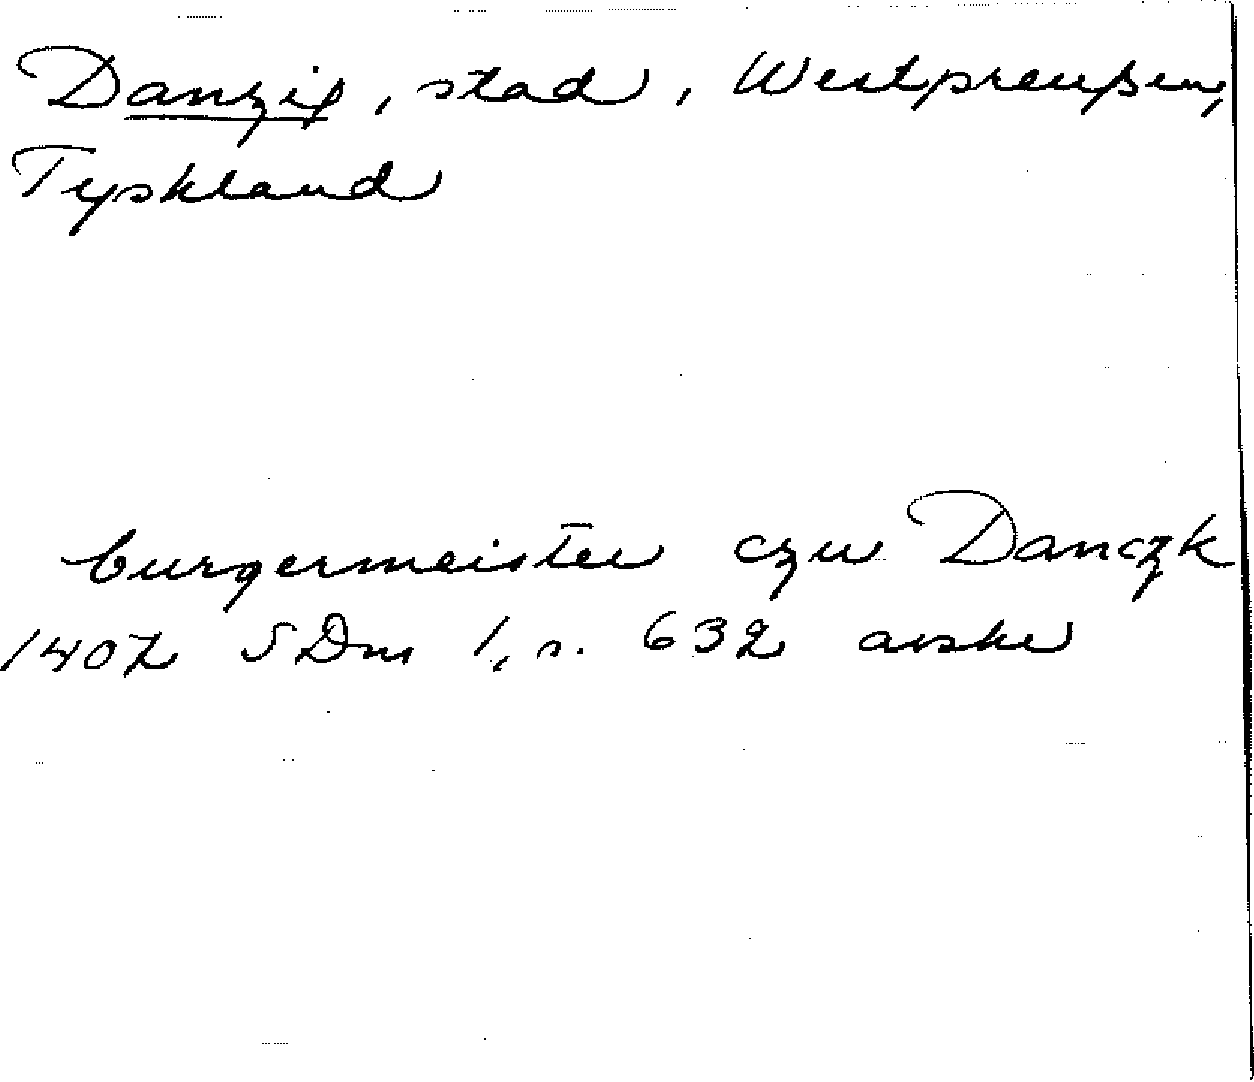 Danzig, stad, Westpreußen,
Tyskland
burgermeister czu Danczk
1407 SDns 1, s. 632 avskr